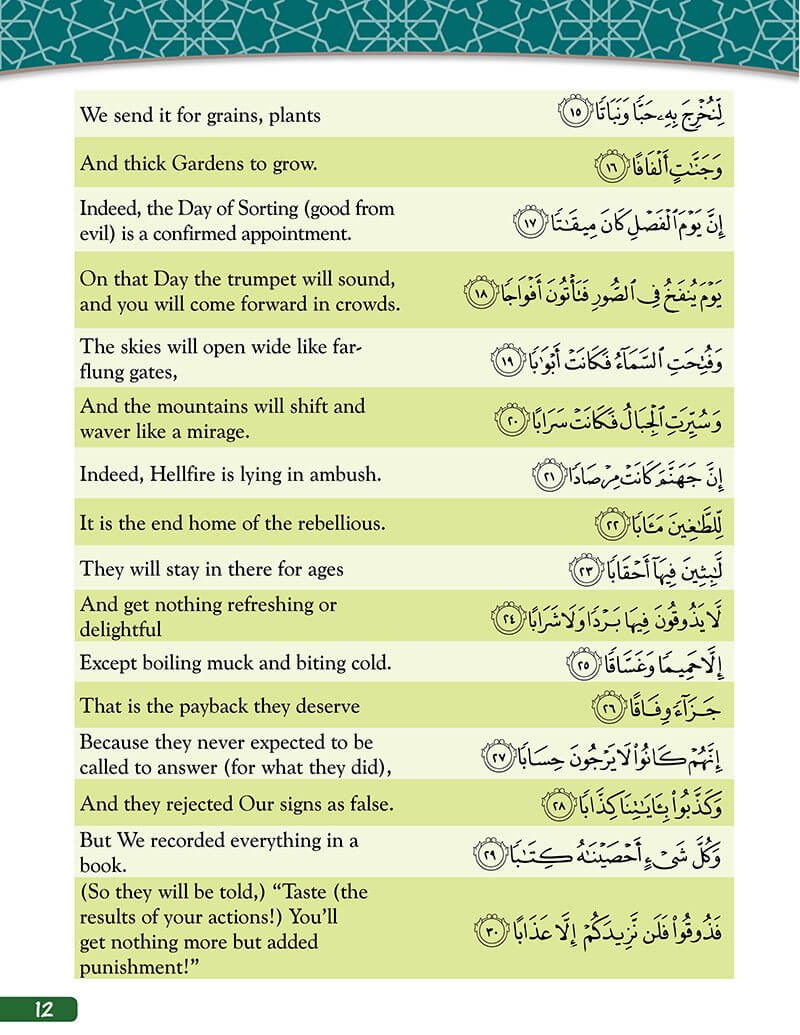 We send it for grains, plants
لِّنُخْرِجَ بِهِۦ حَبًّا وَنَبَاتًا ١٥
And thick Gardens to grow.
وَجَنَّـٰتٍ أَلْفَافًا ١٦
Indeed, the Day of Sorting (good from
evil) is a confirmed appointment.
إِنَّ يَوْمَ ٱلْفَصْلِ كَانَ مِيقَـٰتًا ١٧
On that Day the trumpet will sound,
and you will come forward in crowds.
يَوْمَ يُنفَخُ فِى ٱلصُّورِ فَتَأْتُونَ أَفْوَاجًا ١٨
The skies will open wide like far-
flung gates,
وَفُتِحَتِ ٱلسَّمَآءُ فَكَانَتْ أَبْوَٰبًا ١٩
And the mountains will shift and
waver like a mirage.
وَسُيِّرَتِ ٱلْجِبَالُ فَكَانَتْ سَرَابًا ٢٠
Indeed, Hellfire is lying in ambush.
إِنَّ جَهَنَّمَ كَانَتْ مِرْصَادًا ٢١
It is the end home of the rebellious.
لِّلطَّـٰغِينَ مَـَٔابًا ٢٢
They will stay in there for ages
لَّـٰبِثِينَ فِيهَآ أَحْقَابًا ٢٣
And get nothing refreshing or
delightful
لَّا يَذُوقُونَ فِيهَا بَرْدًا وَلَا شَرَابًا ٢٤
Except boiling muck and biting cold.
إِلَّا حَمِيمًا وَغَسَّاقًا ٢٥
That is the payback they deserve
جَزَآءً وِفَاقًا ٢٦
Because they never expected to be
called to answer (for what they did),
إِنَّهُمْ كَانُوا۟ لَا يَرْجُونَ حِسَابًا ٢٧
And they rejected Our signs as false.
وَكَذَّبُوا۟ بِـَٔايَـٰتِنَا كِذَّابًا ٢٨
But We recorded everything in a
book.
وَكُلَّ شَىْءٍ أَحْصَيْنَـٰهُ كِتَـٰبًا ٢٩
(So they will be told,) “Taste (the
results of your actions!) You’ll
get nothing more but added
punishment!”
فَذُوقُوا۟ فَلَن نَّزِيدَكُمْ إِلَّا عَذَابًا ٣٠
12